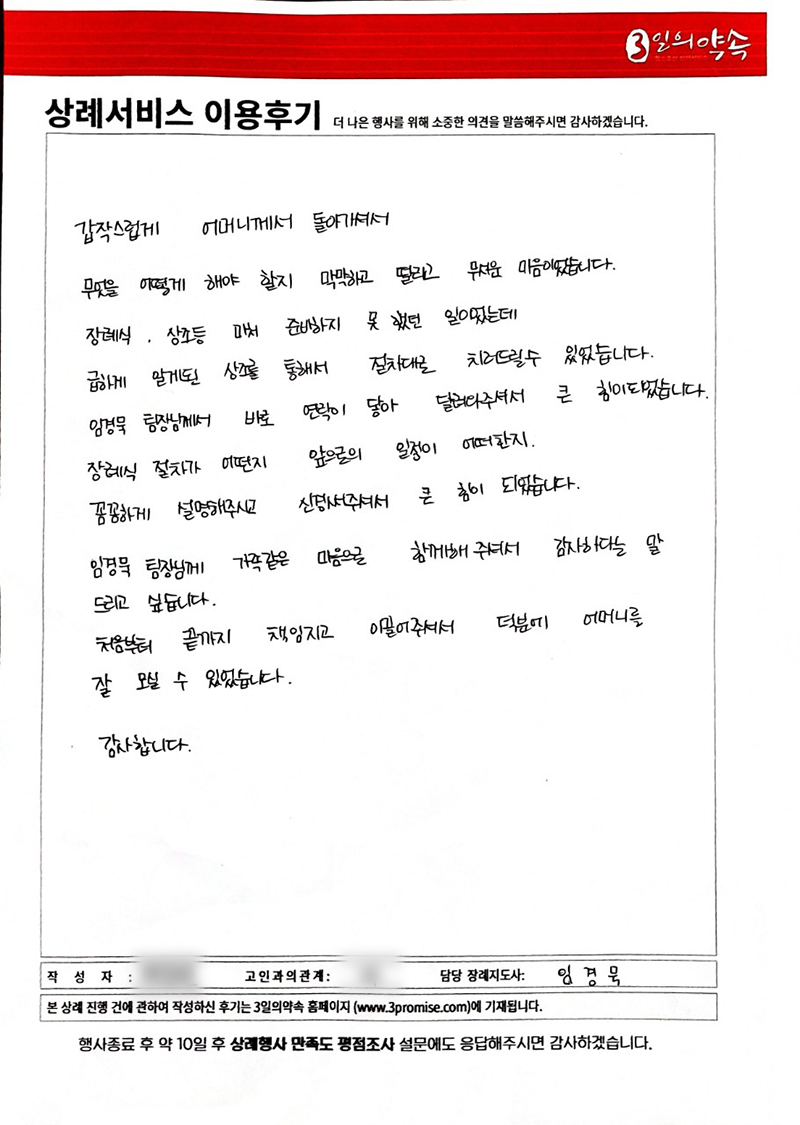 3일의약속
상례서비스 이용후기 더 나은 행사를 위해 소중한 의견을 말씀해주시면 감사하겠습니다.
갑작스럽게 어머니께서 돌아가셔서
무엇을 어떻게 해야 할지 막막하고 떨리고 무서운 마음이었습니다.
장례식, 상조등 미처 준비하지 못 했던 일이었는데
급하게 알게된 상조를 통해서 절차대로 치러드릴수 있었습니다.
임경묵 팀장님께서 바로 연락이 닿아 달려와주셔서 큰 힘이되었습니다.
장례식 절차가 어떤지 앞으로의 일정이 어떠한지.
꼼꼼하게 설명해주시고 신경써주셔서 큰 힘이 되었습니다.
임경묵 팀장님께 가족같은 마음으로 함께해 주셔서 감사하다는 말
드리고 싶습니다.
처음부터 끝까지 책임지고 이끌어주셔서 덕분에 어머니를
잘 모실 수 있었습니다.
감사합니다.
작 성 자 : 고인과의관계: 담당 장례지도사: 임경묵
본 상례 진행 건에 관하여 작성하신 후기는 3일의약속 홈페이지 (www.3promise.com)에 기재됩니다.
행사종료 후 약 10일 후 상례행사 만족도 평점조사 설문에도 응답해주시면 감사하겠습니다.